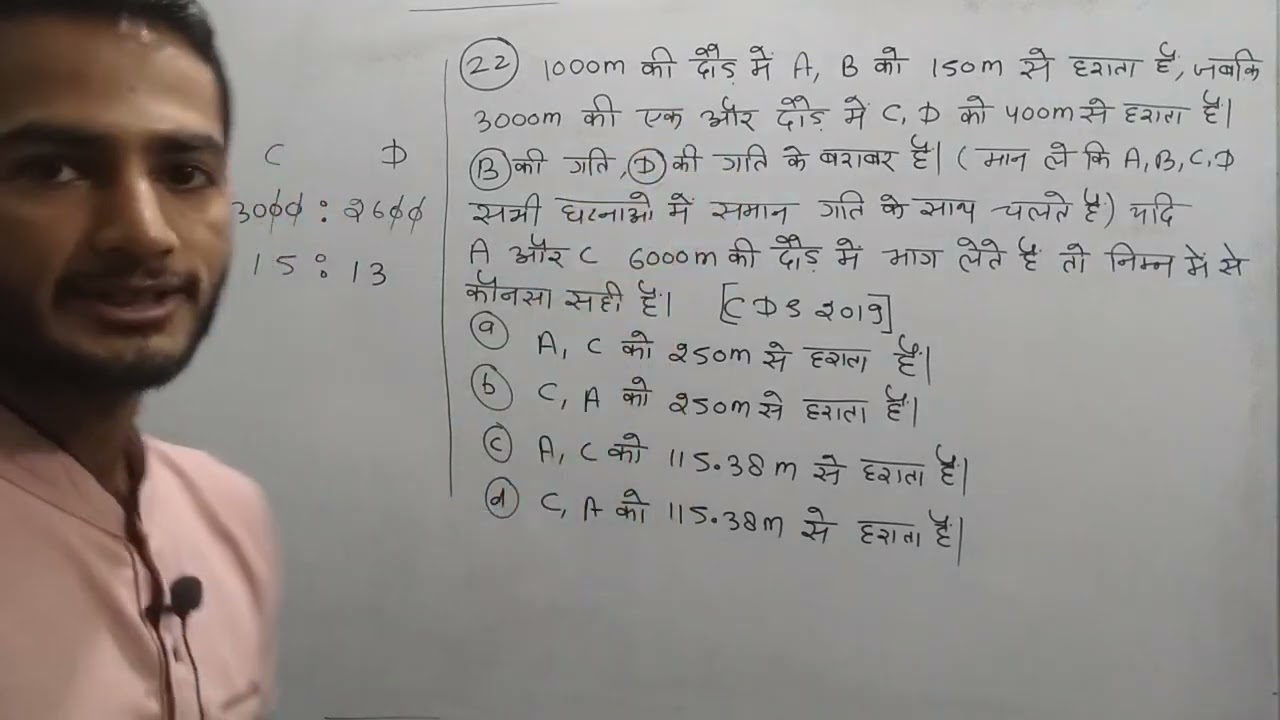 C D
3000 : 2600
15 : 13
22 1000m की दौड़ में A, B को 150m से हराता है, जबकि
3000m की एक और दौड़ में C, D को 400m से हराता है।
B की गति, D की गति के बराबर है। ( मान ले कि A, B, C, D
सभी घटनाओ में समान गति के साथ चलते है) यदि
A और C 6000m की दौड़ में भाग लेते है तो निम्न में से
कौनसा सही है। [CDS 2019]
a A, C को 250m से हराता है।
b C, A को 250m से हराता है।
c A, C को 115.38m से हराता है।
d C, A को 115.38m से हराता है।